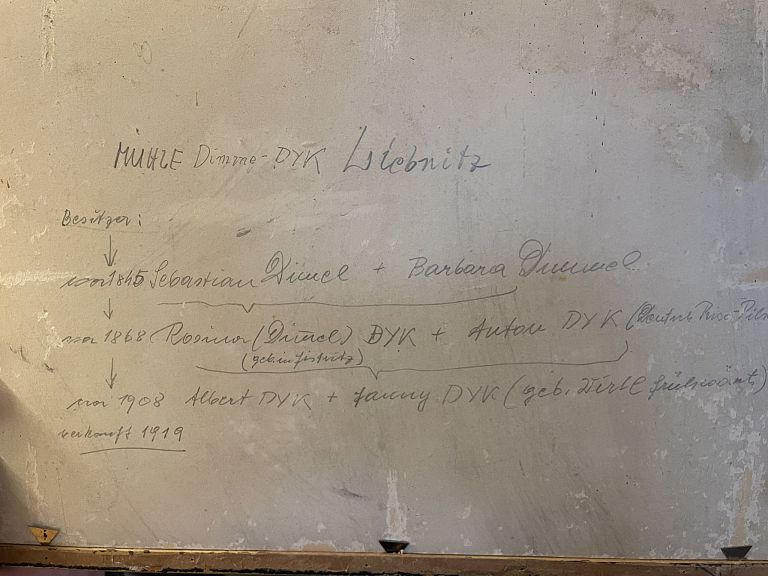 MÜHLE Dimme-DYK Liebnitz
Besitzer:
vor 1845 Sebastian Dimel + Barbara Dimmel
vor 1868 Rosina (Dimel) DYK + Anton DYK
(geb. in
vor 1908 Albert DYK + Fanny DYK (geb. Wirtl
verkauft 1919